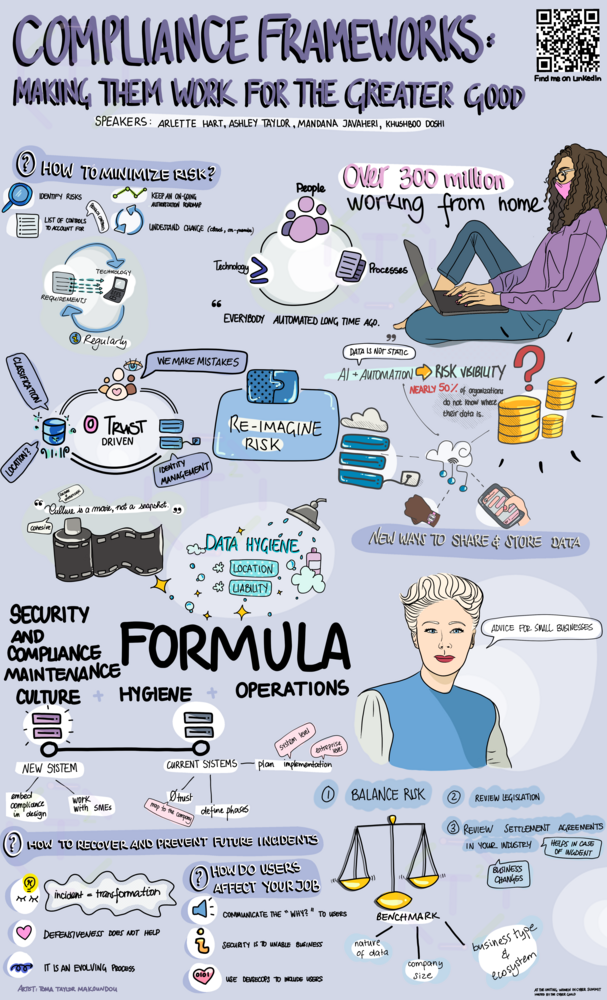 COMPLIANCE FRAMEWORKS:
MAKING THEM WORK FOR THE GREATER GOOD
Find me on LinkedIn
SPEAKERS: ARLETTE HART, ASHLEY TAYLOR, MANDANA JAVAHERI, KHUSHBOO DOSHI
? HOW TO MINIMIZE RISK?
IDENTIFY RISKS
KEEP AN ON-GOING
AUTHORIZATION ROADMAP
LIST OF CONTROLS
TO ACCOUNT FOR
UNDESTAND CHANGE (cloud, on-premise)
TECHNOLOGY
REQUIREMENTS
Regularly
People
Technology
Processes
“
EVERYBODY AUTOMATED LONG TIME AGO.
”
Over 300 million
working from home
CLASSIFICATION
LOCATION?
WE MAKE MISTAKES
0 TRUST
DRIVEN
IDENTITY
MANAGEMENT
RE-IMAGINE
RISK
DATA IS NOT STATIC
AI + AUTOMATION
RISK VISIBILITY
NEARLY 50% of organizations
do not know where
their data is.
?
NEW WAYS TO SHARE & STORE DATA
“ Culture is a movie, not a snapshot. ”
cohesive
DATA HYGIENE
LOCATION
LIABILITY
SECURITY
AND
COMPLIANCE
MAINTENANCE
FORMULA
CULTURE + HYGIENE + OPERATIONS
ADVICE FOR SMALL BUSINESSES
NEW SYSTEM
embed
compliance
in design
work
with SMEs
CURRENT SYSTEMS
plan implementation
system level
enterprise
level
0 trust
map to the company
define phases
1 BALANCE RISK
2 REVIEW LEGISLATION
3 REVIEW SETTLEMENT AGREEMENTS
IN YOUR INDUSTRY
HELPS IN CASE
OF INCIDENT
BUSINESS
CHANGES
BENCHMARK
nature
of data
company
size
business type
&
ecosystem
? HOW TO RECOVER AND PREVENT FUTURE INCIDENTS
incident = transformation
DEFENSIVENESS DOES NOT HELP
IT IS AN EVOLVING PROCESS
? HOW DO USERS
AFFECT YOUR JOB
COMMUNICATE THE "WHY?" TO USERS
SECURITY IS TO UNABLE BUSINESS
USE DEVSECOPS TO INCLUDE USERS